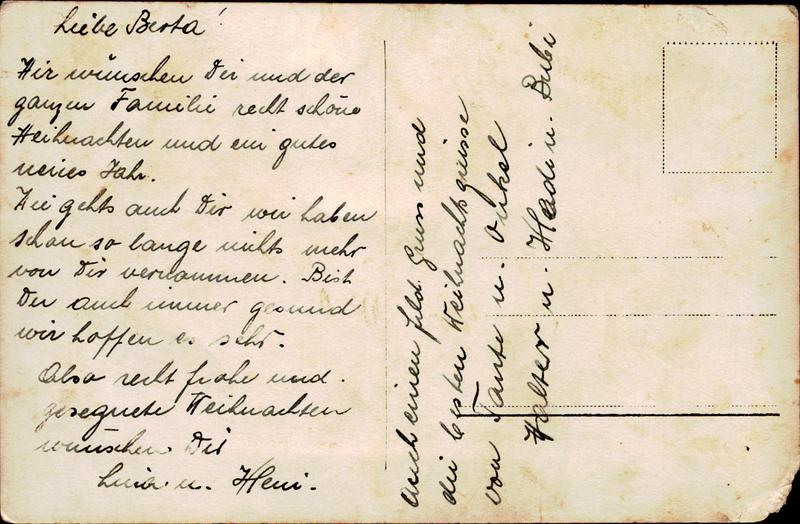 Liebe Berta!
Wir wünschen Dir und der
ganzen Familie recht schöne
Weihnachten und ein gutes
neues Jahr.
Wie gehts auch Dir wir haben
schon so lange nichts mehr
von Dir vernommen. Bist
Du auch immer gesund
wir hoffen es sehr.
Also recht frohe und
gesegnete Weihnachten
wünschen Dir
Lina u. Heni.
Auch einen fröhl. Gruss und
die besten Weihnachtsgrüsse
von Tante u. Onkel
Walter u. Hedi u. Bubi